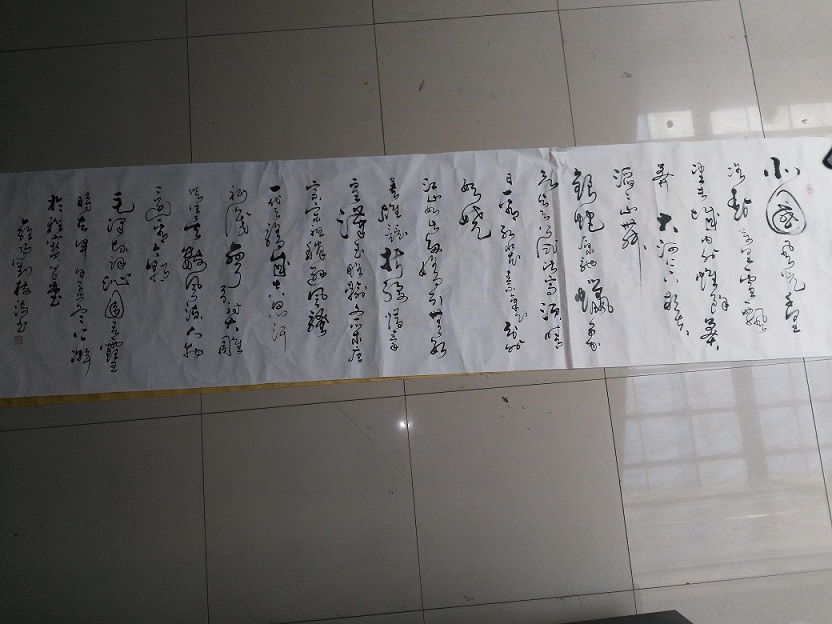 北國風光千里
冰封万里雪飄
望長城内外惟餘莽
莽大河上下頓失
滔滔山舞
銀蛇原馳蠟象欲
與天公試比高須晴
日看紅裝素裹分外
妖嬈
江山如此多嬌引無數
英雄競折腰惜秦
皇漢武略輸文采唐
宗宋祖稍遜風騷
一代天驕成吉思汗
只識彎弓射大雕俱
往矣數風流人物
還看今朝
毛澤東詞沁園春雪
時在
於
劉